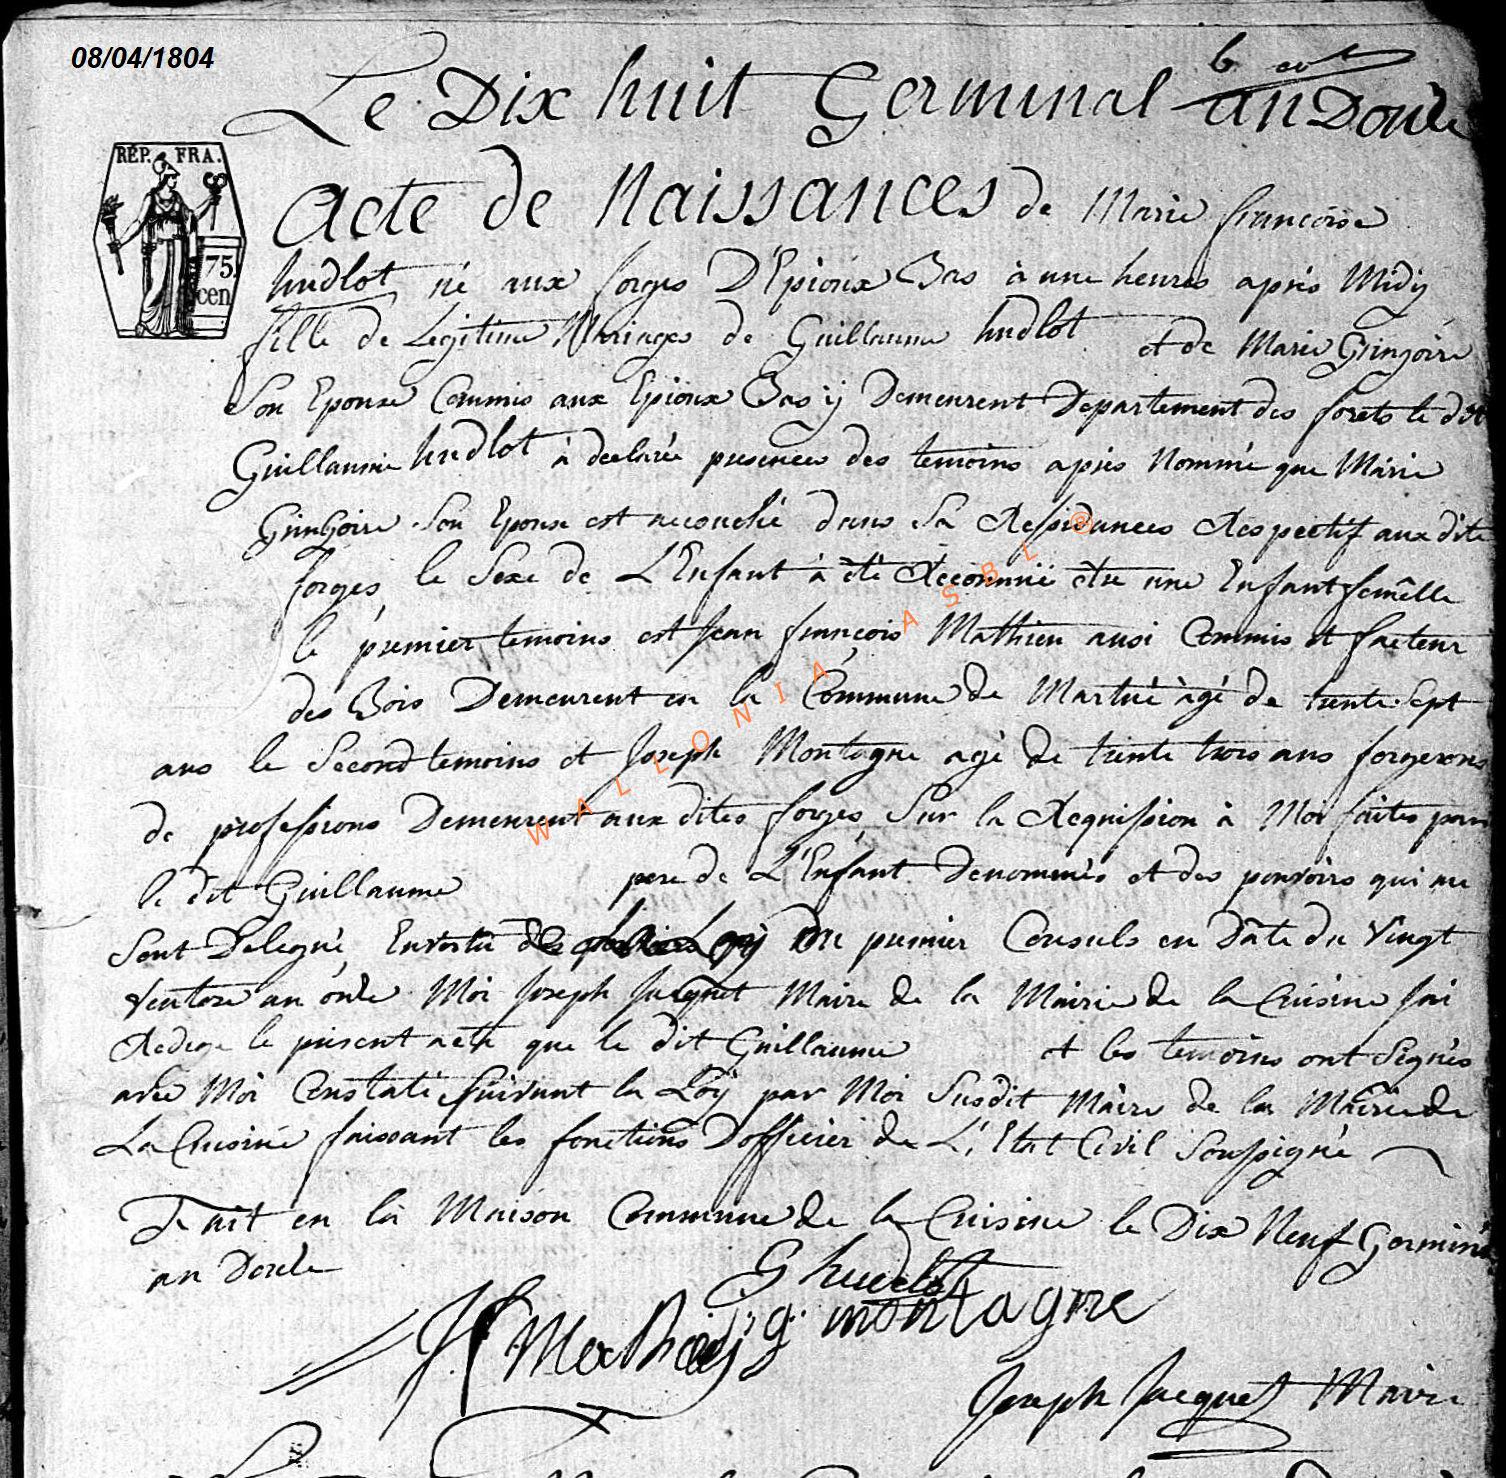 08/04/1804
Le Dix huit Germinal an Douze
RÉP. FRA.
75.
cen
Acte de Naissances de Marie françoise
hudlot né aux forges D'Epioux Bas à une heures après Midÿ
fille de Legitime Mariages de Guillaume hudlot et de Marie Gringoire
Son Epouse Commis aux Epioux Bas ÿ Demeurent Departement des forets le dit
Guillaume hudlot à declarée presences des temoins après Nommé que Marie
Gringoire Son Epouse est accouché dans Sa Residances Respectif aux dite
forges le Sexe de L'Enfant à été Reconnuë être une Enfant femêlle
le premier temoins est Jean françois Mathieu ausi Commis et facteur
des Bois Demeurent en la Commune de Martué àgé de trente Sept
ans le Second temoins et Joseph Montagne agé de trente trois ans forgerons
de professions Demeurent aux dites forges Sur la Requission à Moi faites par
le dit Guillaume pere de L'Enfant Denommés et des pouvoirs qui me
Sont Delegué Envertu Du premier Consuls en Dâte du Vingt
Ventose an onde Moi Joseph Jacquet Maire de la Mairie de la Cuisine Jai
Redige le present acte que le dit Guillaume et les temoins ont Segnés
avec Moi Constaté Suivant la Loÿ par Moi Susdit Maire de la Mairie de
La Cuisine faissant les fonctions D'officier de L'Etat Civil Soussigné
Fait en la Maison Commune de la Cuisine le Dix Neuf Germinal
an Douze
G hudlot
JF Mathieu J. g. montagne
Joseph Jacquet Maire
WALLONIA ASBL ®